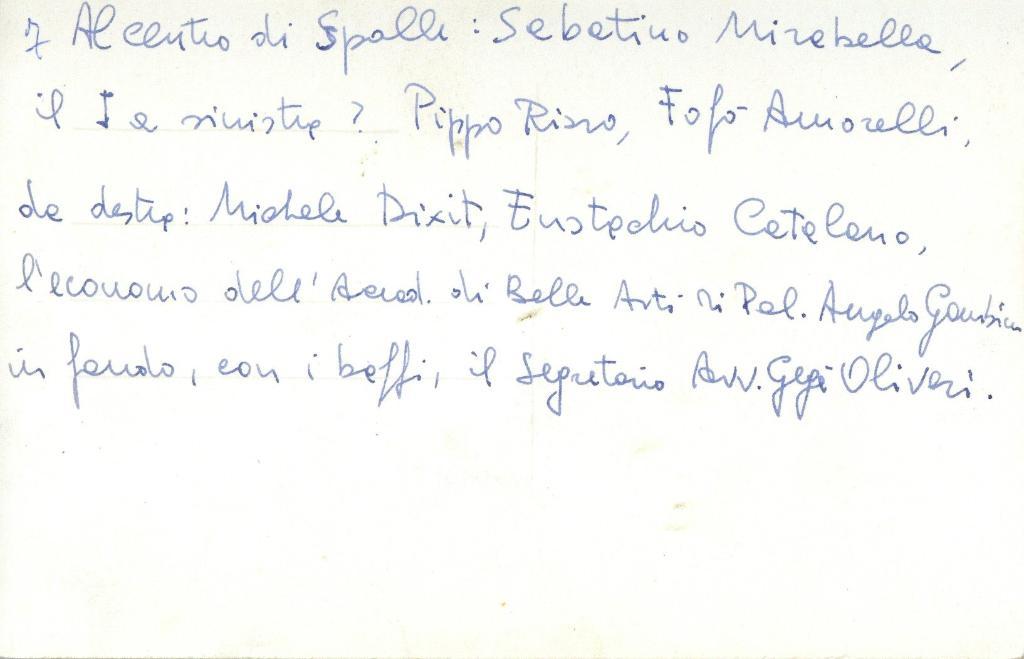 7 Al centro di Spalle: Sabatino Mirabella,
il I a sinistra? Pippo Rizzo, Fofò Amorelli,
da destra: Michele Dixit, Eustachio Catalano,
l'economo dell'Accad. di Belle Arti di Pal. Angelo
in fondo, con i baffi, il Segretario Avv. Gegè Oliveri.